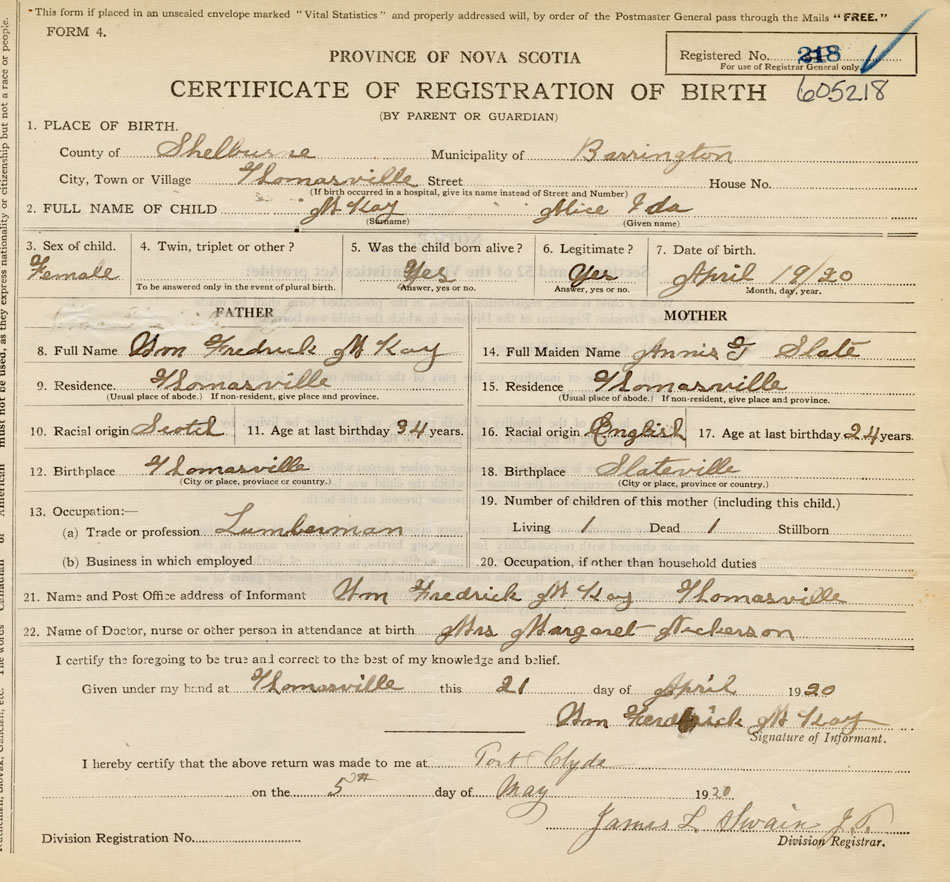 "This form if placed in an unsealed envelope marked "Vital Statistics" and properly addressed will, by order of the Postmaster General pass through the Mails "FREE."
FORM 4.
Registered No. 218
For use of Registrar General only
PROVINCE OF NOVA SCOTIA
CERTIFICATE OF REGISTRATION OF BIRTH 605218
(BY PARENT OR GUARDIAN)
1. PLACE OF BIRTH.
County of Shelburne Municipality of Barrington
City, Town or Village Thomasville Street House No.
(If birth occurred in a hospital, give its name instead of Street and Number)
2. FULL NAME OF CHILD McKay Alice Ida
(Surname) (Given name)
3. Sex of child. 4. Twin, triplet or other? 5. Was the child born alive? 6. Legitimate? 7. Date of birth.
Female Yes Yes April 19/20
To be answered only in the event of plural birth. Answer, yes or no. Answer, yes or no. Month, day, year.
FATHER MOTHER
8. Full Name Wm Fredrick McKay 14. Full Maiden Name Annis T Slate
9. Residence. Thomasville 15. Residence Thomasville
(Usual place of abode.) If non-resident, give place and province. (Usual place of abode.) If non-resident, give place and province.
10. Racial origin Scotch 11. Age at last birthday 34 years. 16. Racial origin English 17. Age at last birthday 24 years.
12. Birthplace Thomasville 18. Birthplace Slateville
(City or place, province or country.) (City or place, province or country.)
13. Occupation:— 19. Number of children of this mother (including this child.)
(a) Trade or profession Lumberman Living 1 Dead 1 Stillborn
(b) Business in which employed 20. Occupation, if other than household duties
21. Name and Post Office address of Informant Wm Fredrick McKay Thomasville
22. Name of Doctor, nurse or other person in attendance at birth Mrs Margaret Nickerson
I certify the foregoing to be true and correct to the best of my knowledge and belief.
Given under my hand at Thomasville this 21 day of April 1920
Wm Ferdrick McKay
Signature of Informant.
I hereby certify that the above return was made to me at Port Clyde
on the 5th day of May 1920
James L Swain J.P.
Division Registration No. Division Registrar.